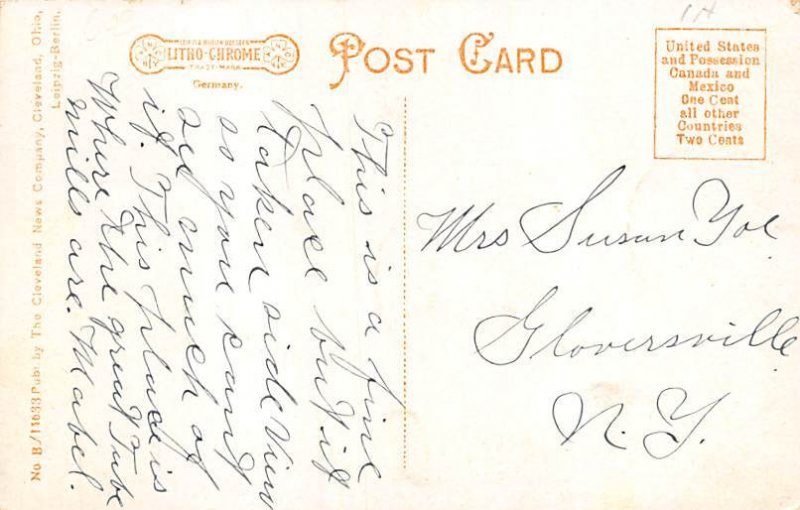 LITHO-CHROME
TRADE-MARK
Germany.
POST CARD
United States
and Possession
Canada and
Mexico
One Cent
all other
Countries
Two Cents
This is a fine
place but it
taken side view
so you cant
see much of
it. This place is
Where the great Tube
mills are. Mabel.
Mrs Susan Yoe
Gloversville
N.Y.
No B/11633 Pub. by The Cleveland News Company, Cleveland, Ohio,
Leipzig-Berlin.